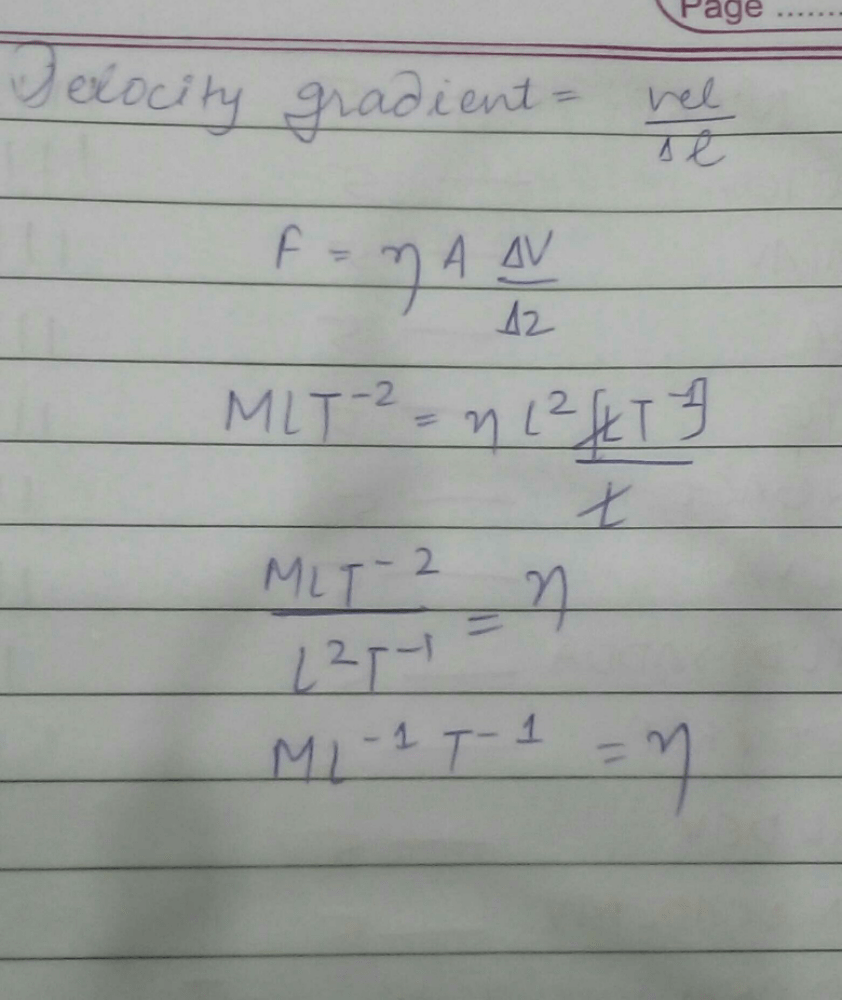 Page ........
Velocity gradient = vel/Δl
F = η A ΔV/Δz
MLT⁻² = η L² [LT⁻¹]/L
MLT⁻²/L²T⁻¹ = η
ML⁻¹ T⁻¹ = η